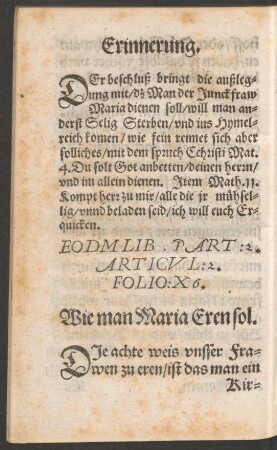 Erinnerung.
DEr beschluß bringt die außleg-
ung mit/dz Man der Junckfraw
Maria dienen soll/will man an-
derst Selig Sterben/vnd ins Hymel-
reich komen/wie fein reimet sich aber
solliches/mit dem spruch Christi Mat.
4. Du solt Got anbetten/deinen herrn/
vnd im allein dienen. Item Math. 11.
Kompt her zů mir/alle die jr mühsel-
lig/vnnd beladen seid/ich will euch Er-
quicken.
EODM LIB. PART: 2.
ARTICVL: 2.
FOLIO: X6.
Wie man Maria Eren sol.
DJe achte weis vnsser Fra-
wen zu eren/ist das man ein
Kir-